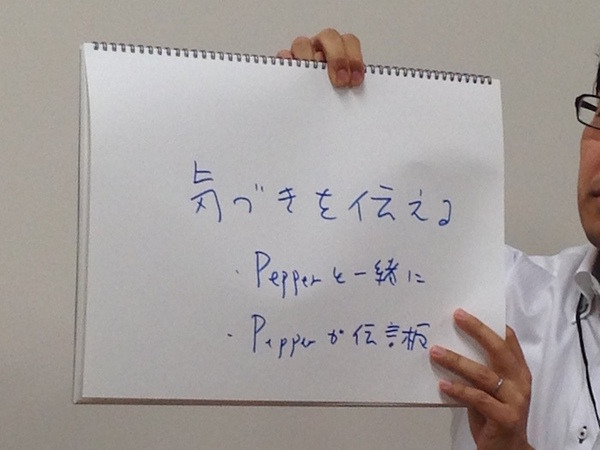 気づきを伝える
・Pepperと一緒に
・Pepperが伝言板